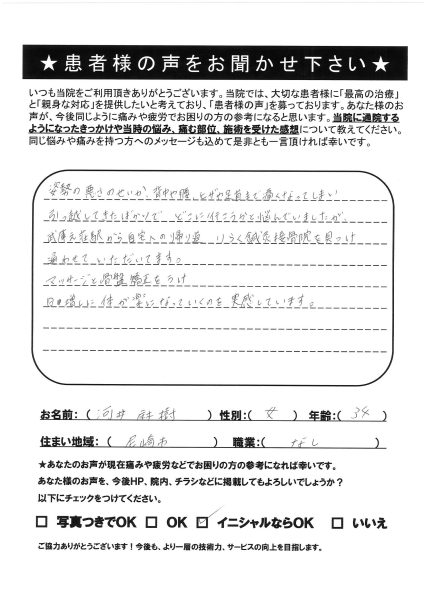 ★患者様の声をお聞かせ下さい★
いつも当院をご利用頂きありがとうございます。当院では、大切な患者様に「最高の治療」
と「親身な対応」を提供したいと考えており、「患者様の声」を募っております。あなた様のお
声が、今後同じように痛みや疲労でお困りの方の参考になると思います。当院に通院する
ようになったきっかけや当時の悩み、痛む部位、施術を受けた感想について教えてください。
同じ悩みや痛みを持つ方へのメッセージも込めて是非とも一言頂ければ幸いです。
姿勢の悪さのせいか、背中や腰、ヒザや足首まで痛くなってしまい
引っ越してきたばかりで、どこに行こうかと悩んでいましたが、
武庫之荘駅から自宅への帰り道、いろく鍼灸接骨院を見つけ
通わせていただいてます。
マッサージと骨盤矯正をうけ
日に増しに体が楽になっていくのを実感しています。
お名前:( 河井 麻樹 ) 性別:( 女 ) 年齢:( 34 )
住まい地域:( 尼崎市 ) 職業:( なし )
★あなたのお声が現在痛みや疲労などでお困りの方の参考になれば幸いです。
あなた様のお声を、今後HP、院内、チラシなどに掲載してもよろしいでしょうか?
以下にチェックをつけてください。
□ 写真つきでOK □ OK ☑ イニシャルならOK □ いいえ
ご協力ありがとうございます!今後も、より一層の技術力、サービスの向上を目指します。